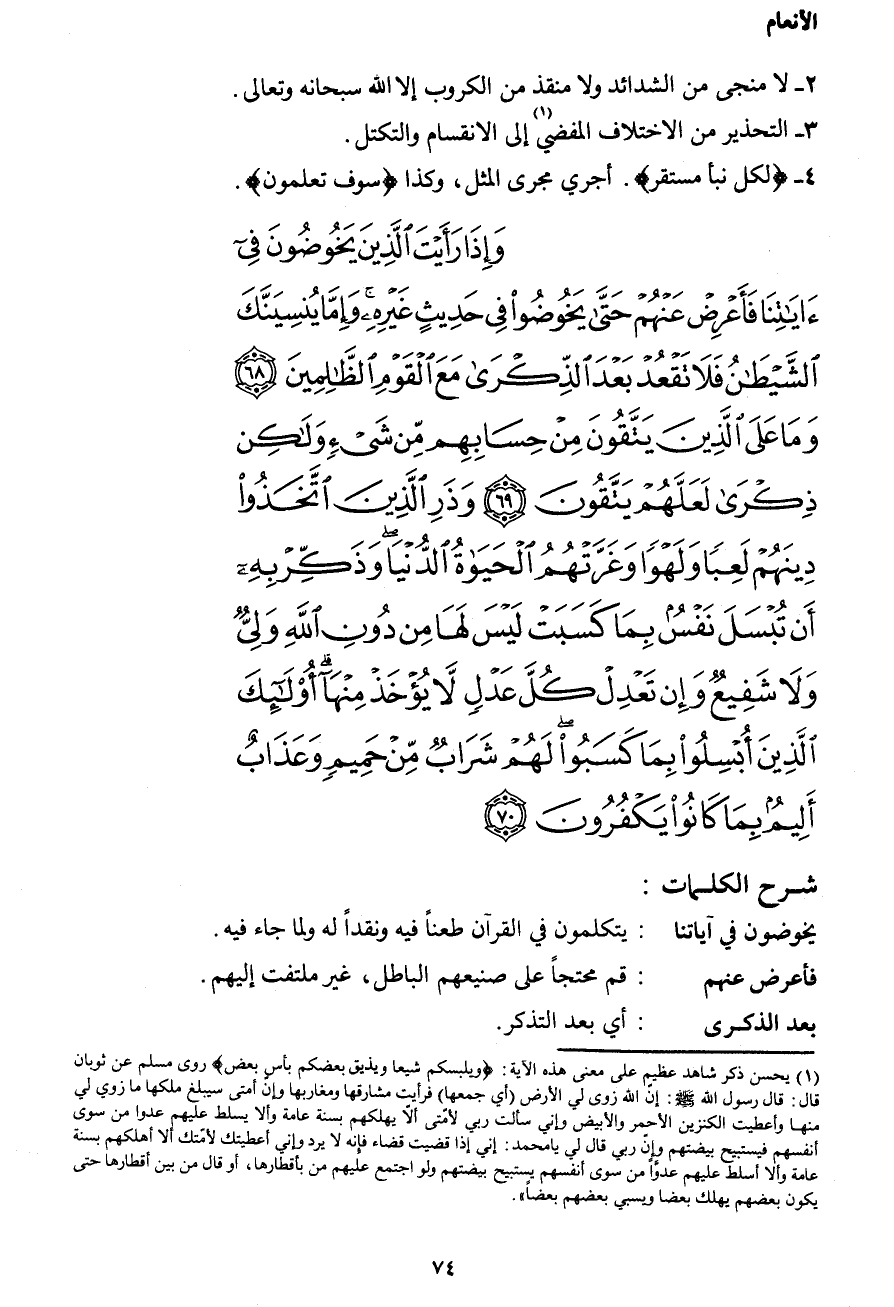 الأنعام
٢ـ لا منجى من الشدائد ولا منقذ من الكروب إلا الله سبحانه وتعالى.
٣ـ التحذير من الاختلاف المفضي(١) إلى الانقسام والتكتل.
٤ـ ﴿لكل نبأ مستقر﴾. أجري مجرى المثل، وكذا ﴿سوف تعلمون﴾.
وَإِذَا رَأَيْتَ ٱلَّذِينَ يَخُوضُونَ فِىٓ
ءَايَٰتِنَا فَأَعْرِضْ عَنْهُمْ حَتَّىٰ يَخُوضُوا۟ فِى حَدِيثٍ غَيْرِهِۦ ۚ وَإِمَّا يُنسِيَنَّكَ
ٱلشَّيْطَٰنُ فَلَا تَقْعُدْ بَعْدَ ٱلذِّكْرَىٰ مَعَ ٱلْقَوْمِ ٱلظَّٰلِمِينَ ٦٨
وَمَا عَلَى ٱلَّذِينَ يَتَّقُونَ مِنْ حِسَابِهِم مِّن شَىْءٍ وَلَٰكِن
ذِكْرَىٰ لَعَلَّهُمْ يَتَّقُونَ ٦٩ وَذَرِ ٱلَّذِينَ ٱتَّخَذُوا۟
دِينَهُمْ لَعِبًا وَلَهْوًا وَغَرَّتْهُمُ ٱلْحَيَوٰةُ ٱلدُّنْيَا ۖ وَذَكِّرْ بِهِۦٓ
أَن تُبْسَلَ نَفْسٌۢ بِمَا كَسَبَتْ لَيْسَ لَهَا مِن دُونِ ٱللَّهِ وَلِىٌّ
وَلَا شَفِيعٌ وَإِن تَعْدِلْ كُلَّ عَدْلٍ لَّا يُؤْخَذْ مِنْهَآ ۗ أُو۟لَٰٓئِكَ
ٱلَّذِينَ أُبْسِلُوا۟ بِمَا كَسَبُوا۟ ۖ لَهُمْ شَرَابٌ مِّنْ حَمِيمٍ وَعَذَابٌ
أَلِيمٌۢ بِمَا كَانُوا۟ يَكْفُرُونَ ٧٠
شرح الكلمات :
يخوضون في آياتنا : يتكلمون في القرآن طعناً فيه ونقداً له ولما جاء فيه.
فأعرض عنهم : قم محتجاً على صنيعهم الباطل، غير ملتفت إليهم.
بعد الذكرى : أي بعد التذكر.
(١) يحسن ذكر شاهد عظيم على معنى هذه الآية: ﴿ويلبسكم شيعا ويذيق بعضكم بأس بعض﴾ روى مسلم عن ثوبان
قال: قال رسول الله ﷺ: إنّ الله زوى لي الأرض (أي جمعها) فرأيت مشارقها ومغاربها وإن أمتى سيبلغ ملكها ما زوي لي
منها وأعطيت الكنزين الأحمر والأبيض وإني سألت ربي لأمّتى ألاّ يهلكهم بسنة عامة وألا يسلط عليهم عدوا من سوى
أنفسهم فيستبيح بيضتهم وإنّ ربي قال لي يامحمد: إني إذا قضيت قضاء فإنه لا يرد وإني أعطيتك لأمّتك ألا أهلكهم بسنة
عامة وألا أسلط عليهم عدوًّا من سوى أنفسهم يستبيح بيضتهم ولو اجتمع عليهم من بأقطارها، أو قال من بين أقطارها حتى
يكون بعضهم يهلك بعضا ويسبي بعضهم بعضاً».
٧٤